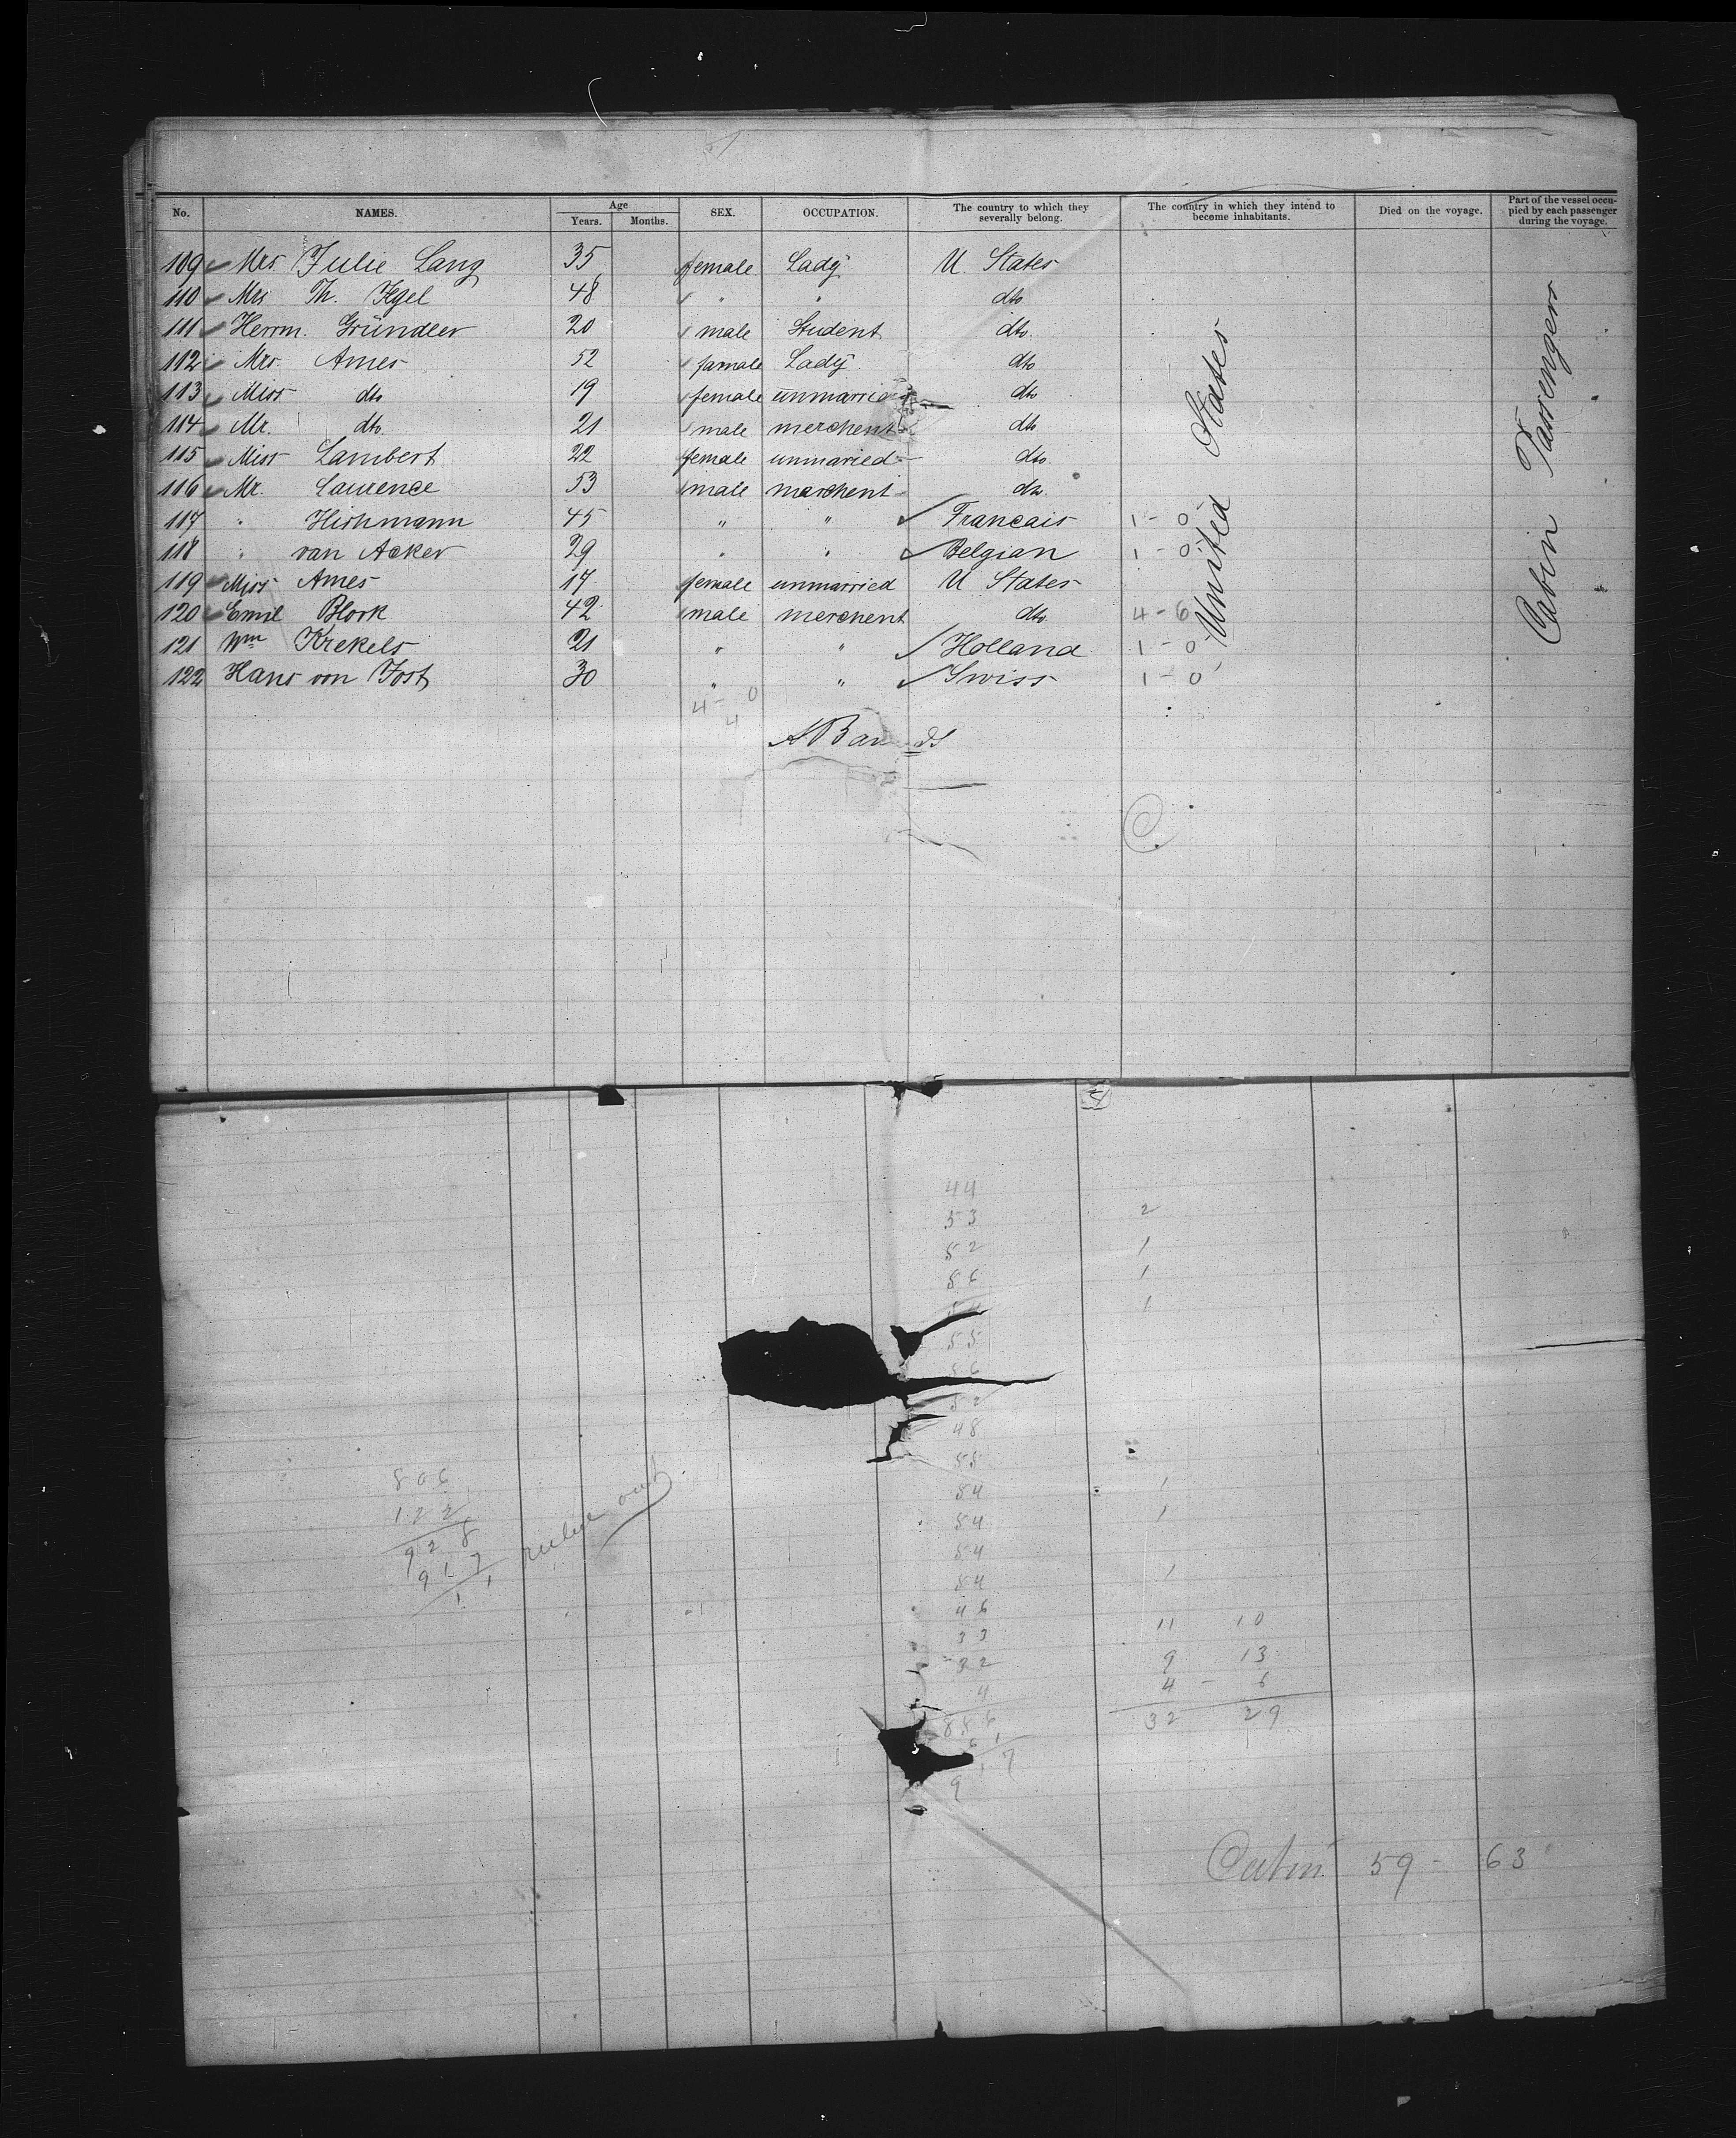 No. NAMES. Age Years. Months. SEX. OCCUPATION. The country to which they severally belong. The country in which they intend to become inhabitants. Died on the voyage. Part of the vessel occupied by each passenger during the voyage.
109 Mrs. Julie Lang 35 female Lady U. States
110 Mrs Th. Jgel 48 " " dto
111 Herrm. Gründler 20 male Student dto.
112 Mrs. Ames 52 famale Lady dto
113 Miss dto 19 female unmarried dto
114 Mr. dto. 21 male merchent dto
115 Miss Lambert 22 female unmaried dto.
116 Mr. Laurence 53 male merchent dto.
117 " Hishmann 45 " " Francais 1 - 0
118 " van Acker 29 " " Belgian 1 - 0
119 Miss Ames 17 female unmarried U. States
120 Emil Block 42 male merchent dto. 4 - 6
121 Wm Krekels 21 " " Holland 1 - 0
122 Hans von Jost 30 " " Swiss 1 - 0
United States
Cabin Passengers
4 - 0
4
44
53 2
52 1
56 1
1
55
56
52
48
55
54 1
54 1
54
54 1
46 11 10
33
32 9 13
4 4 - 6
886 32 29
61
917
806
122
928
917
11
Cabin 59 - 63